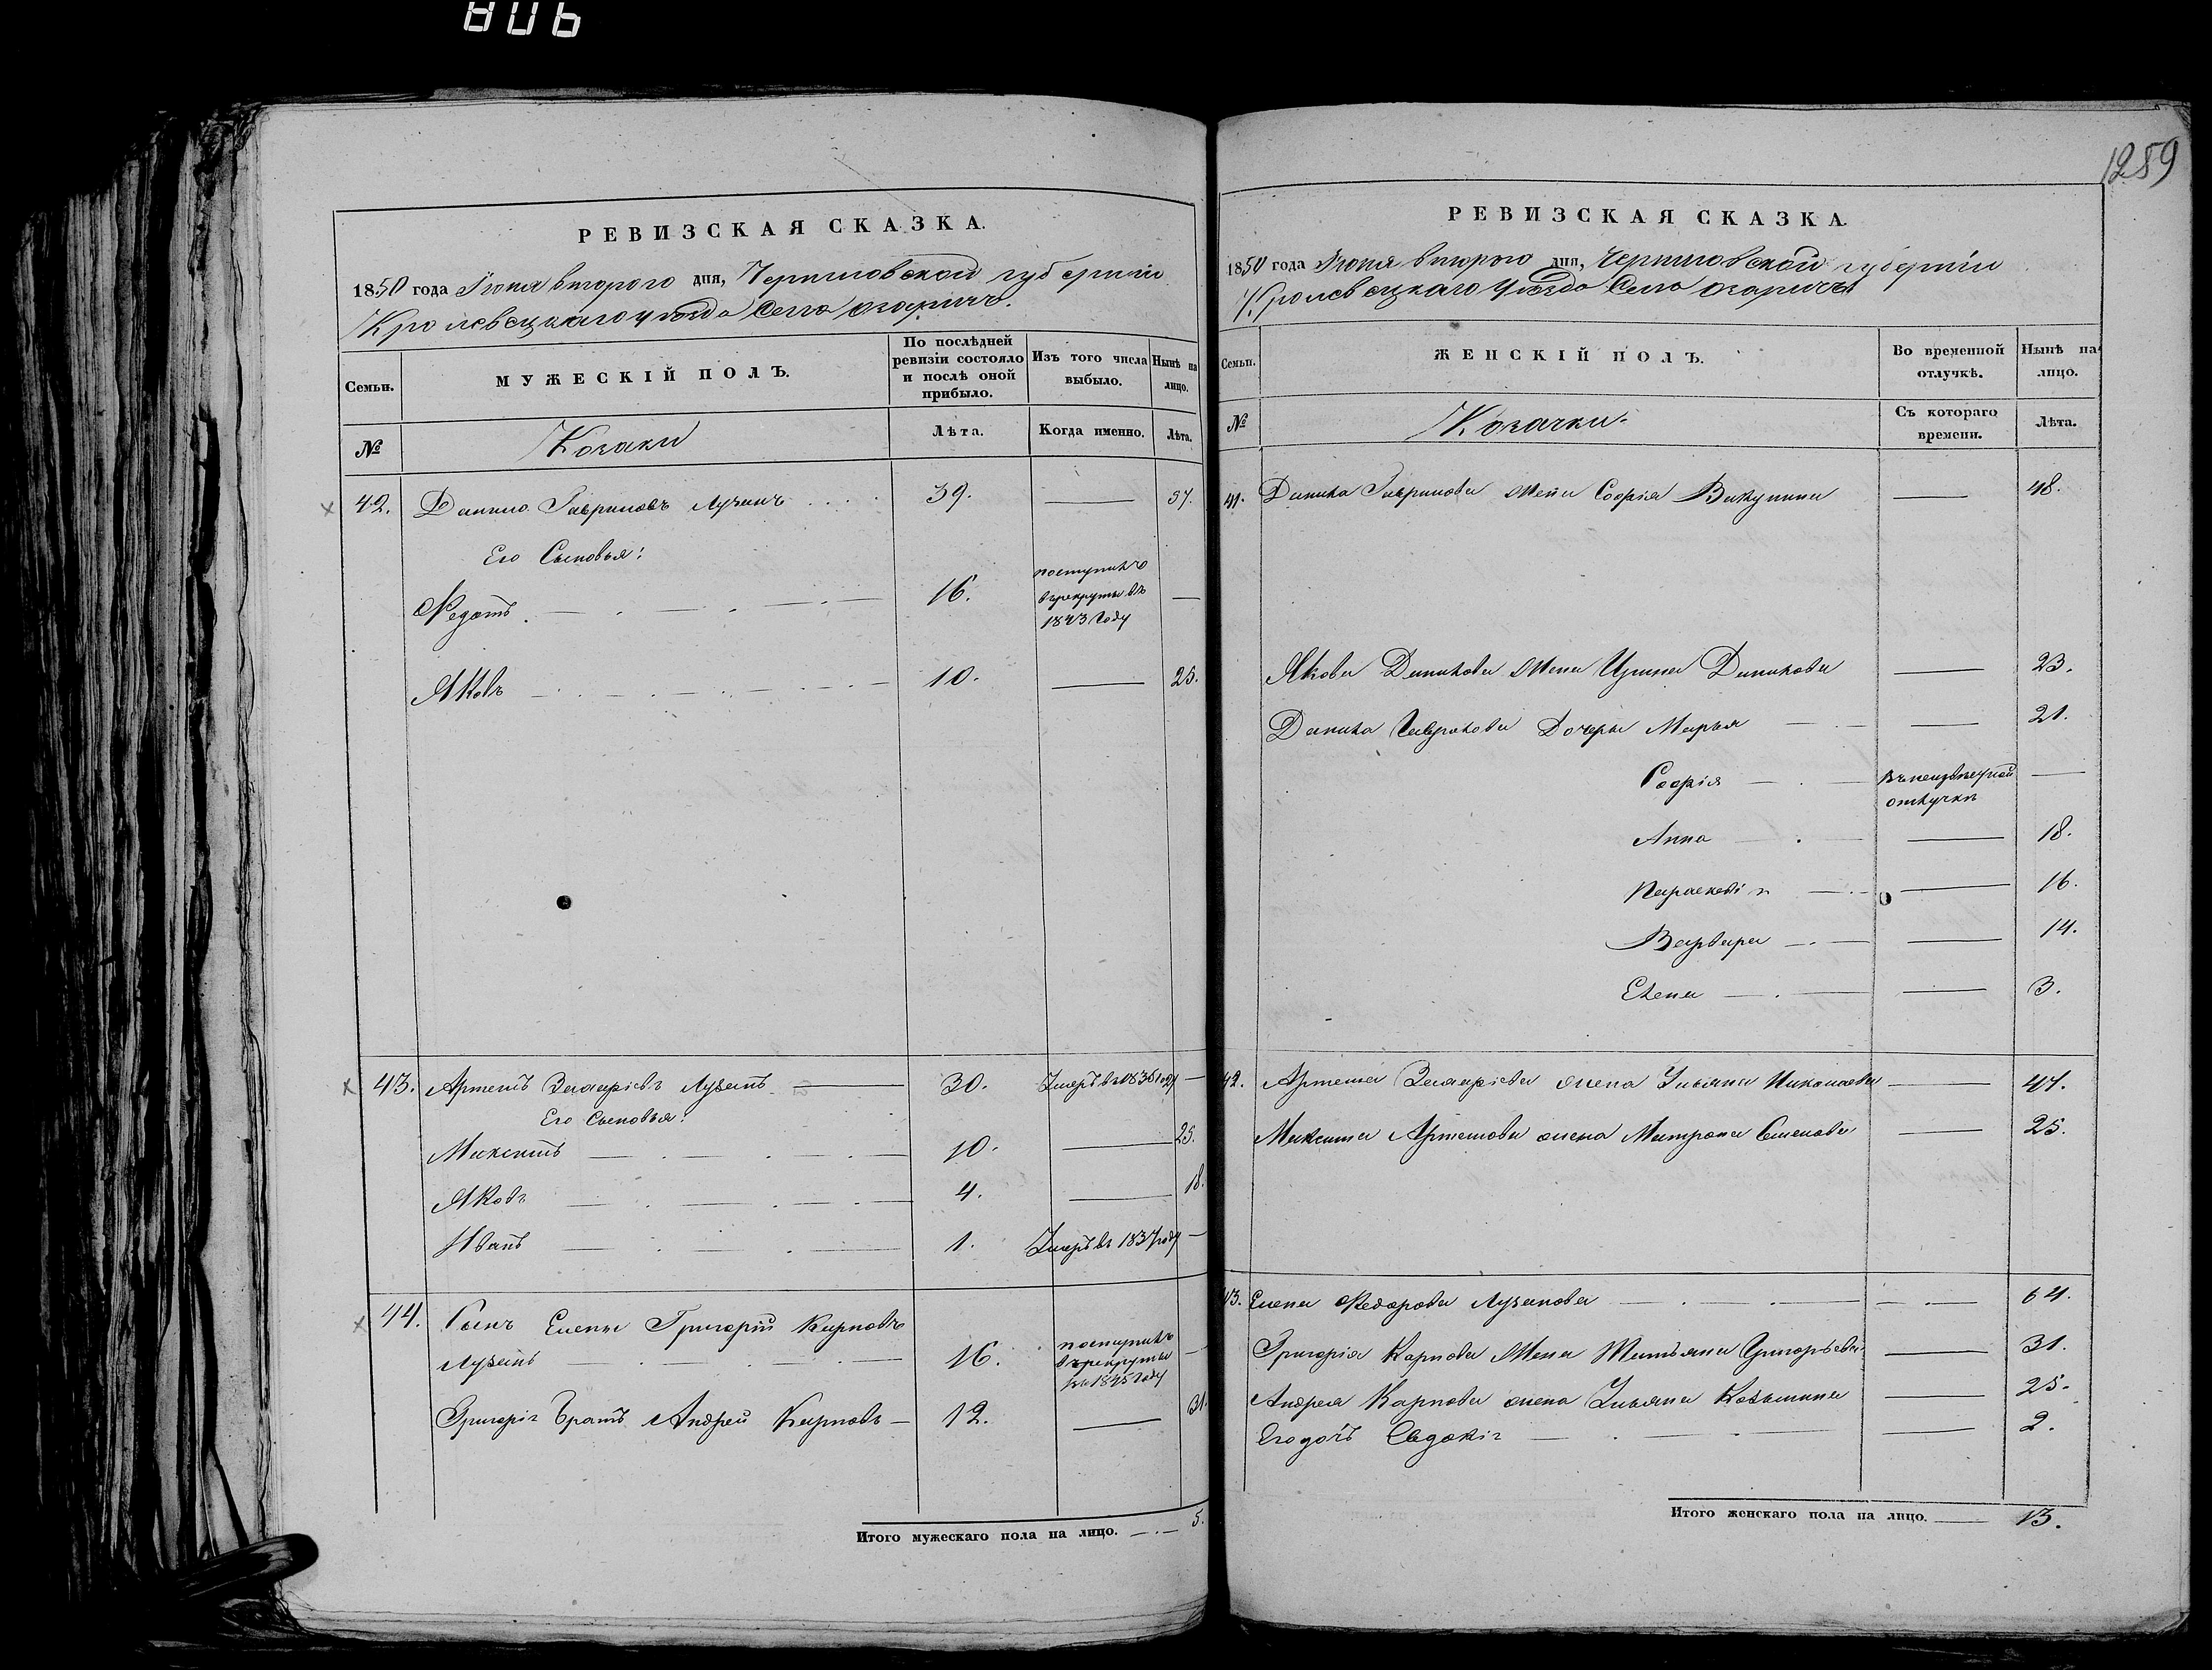 806
1289
РЕВИЗСКАЯ СКАЗКА.
1850 года Іюня второго дня, Черниговской губерніи
Кролевецкаго уезда Села Огаричъ.
Семьи.
МУЖЕСКІЙ ПОЛЪ.
По послѣдней ревизіи состояло и послѣ оной прибыло.
Изъ того числа выбыло.
Нынѣ на лицо.
№
Козаки
Лѣта.
Когда именно.
Лѣта.
42. Данило Гавриловъ Лузанъ 39. 57.
Его Сыновья:
Федотъ 16. поступилъ в рекруты въ 1843 году
Яковъ 10. 25.
43. Артемъ Захаріевъ Лузанъ 30. Умеръ въ 1836 году
Его Сыновья:
Максимъ 10. 25.
Яковъ 4. 18.
Иванъ 1. Умеръ въ 1837 году
44. Сынъ Елены Григорій Карповъ
Лузанъ 16. поступилъ в рекруты въ 1845 году
Григорія братъ Андрей Карповъ 12. 31.
Итого мужескаго пола на лицо. 5.
РЕВИЗСКАЯ СКАЗКА.
1850 года Іюня второго дня, Черниговской губерніи
Кролевецкаго уезда Села Огаричъ
Семьи.
ЖЕНСКІЙ ПОЛЪ.
Во временной отлучкѣ.
Нынѣ на лицо.
№
Козачки.
Съ котораго времени.
Лѣта.
41. Данила Гаврилова жена Софія Викулина 48.
Якова Данилова жена Ирина Данилова 23.
Данила Гаврилова Дочери Марья 21.
Софія въ неизвестной отлучке
Анна 18.
Параскевія 16.
Варвара 14.
Елена 3.
42. Артема Захаріева жена Ульяна Николаева 47.
Максима Артемова жена Матрона Семенова 25.
43. Елена Федорова Лузанова 64.
Григорія Карпова жена Татьяна Григорьева 31.
Андрея Карпова жена Ульяна Козьмина 25.
Его дочъ Евдокія 2.
Итого женскаго пола на лицо. 13.